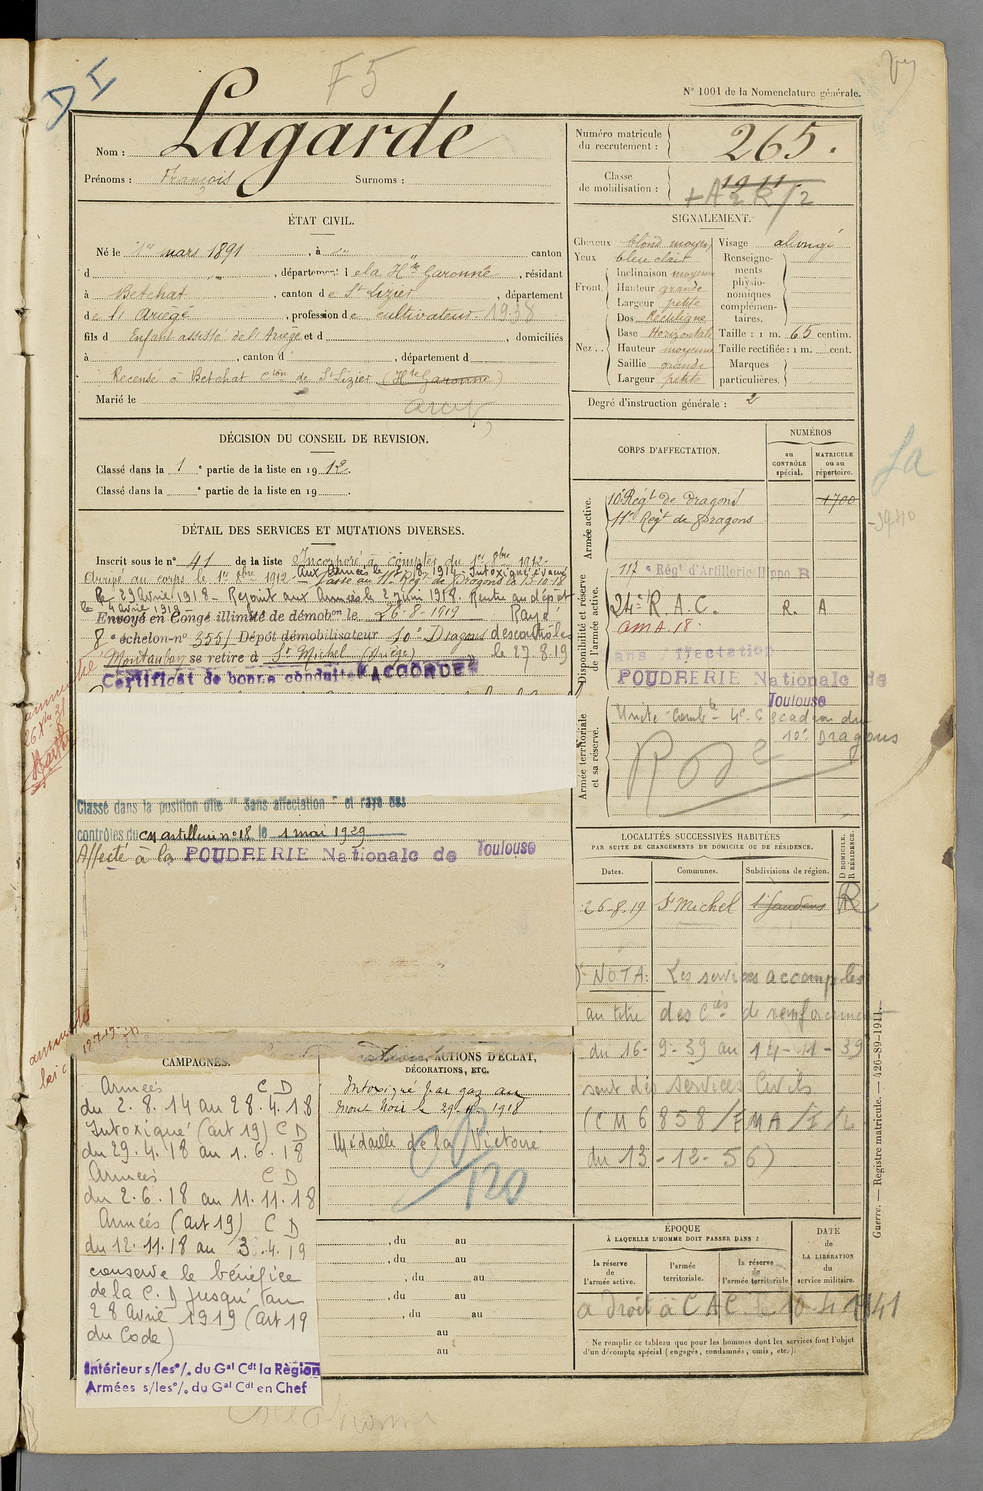 F5
N° 1001 de la Nomenclature générale.
Nom : Lagarde
Prénoms : François Surnoms :
Numéro matricule du recrutement : 265.
Classe de mobilisation : 1911
+A 2 R/2
ÉTAT CIVIL.
Né le 1er mars 1891, à canton
d , département de la Hte Garonne, résidant
à Betchat, canton de St Lizier, département
de l'Ariège, profession de cultivateur 1938
fils d Enfant assisté de l'Ariège et d , domiciliés
à , canton d , département d
Recensé à Betchat cton de St Lizier (Hte Garonne)
Marié le
SIGNALEMENT.
Cheveux blond moyen
Yeux bleu clair
Front. Inclinaison moyenne
Hauteur grande
Largeur petite
Nez. Dos Rectiligne
Base Horizontale
Hauteur moyenne
Saillie grande
Largeur petite
Visage allongé
Renseignements physionomiques complémentaires.
Taille : 1 m. 65 centim.
Taille rectifiée : 1 m. cent.
Marques particulières.
Degré d'instruction générale : 2
DÉCISION DU CONSEIL DE REVISION.
Classé dans la 1e partie de la liste en 1912.
Classé dans la e partie de la liste en 19 .
DÉTAIL DES SERVICES ET MUTATIONS DIVERSES.
Inscrit sous le n° 41 de la liste Incorporé à compter du 1er 8bre 1912
Arrivé au corps le 1er 8bre 1912
Aux Armées le 2-8-1914 - Intoxiqué évacué
Passé au 11e Régt de Dragons le 15-10-18
le 29 Avril 1918 - Rejoint aux Armées le 2 Juin 1918. Rentré au dépôt
le 4 avril 1919
Envoyé en Congé illimité de démobon le 26-8-1919 Rayé
8e échelon-n° 355/ Dépôt démobilisateur 10e Dragons des contrôles
Montauban se retire à St Michel (Ariège) le 27.8.19
Certificat de bonne conduite "ACCORDÉ"
Classé dans la position dite "Sans affectation" et rayé des
contrôles du CM artillerie n° 18 le 1 mai 1929
Affecté à la POUDRERIE Nationale de Toulouse
CORPS D'AFFECTATION.
NUMÉROS
au CONTRÔLE spécial.
MATRICULE ou au répertoire.
Armée active.
10e Régt de Dragons 1700
11e Régt de Dragons
Disponibilité et réserve de l'armée active.
117 e Régt d'Artillerie Hippo R
24e R.A.C. R. A
CMA.18.
Sans Affectation
POUDRERIE Nationale de
Toulouse
Armée territoriale et sa réserve.
Unité Combte - 4e Escadron du
10e Dragons
LOCALITÉS SUCCESSIVES HABITÉES
PAR SUITE DE CHANGEMENTS DE DOMICILE OU DE RÉSIDENCE.
Dates. Communes. Subdivisions de région. D DOMICILE. R RÉSIDENCE.
26-8-19 St Michel St Gaudens R
NOTA: Les services accomplis
au titre des Cies de renforcement
du 16-9-39 au 14-11-39
sont dits services Civils
(CM 6858/EMA/1/L
du 13-12-56)
CAMPAGNES.
Armées CD
du 2.8.14 au 28.4.18
Intoxiqué (art 19) CD
du 29.4.18 au 1.6.18
Armées CD
du 2.6.18 au 11.11.18
Armées (art 19) CD
du 12.11.18 au 3.4.19
conserve le bénéfice
de la C.D jusqu'au
28 Avril 1919 (art 19
du Code)
Intérieur s/les o/. du Gal Cdt la Région
Armées s/les o/. du Gal Cdt en Chef
ACTIONS D'ÉCLAT,
DÉCORATIONS, ETC.
Intoxiqué par gaz au
Mont Noir le 29-4-1918
Médaille de la Victoire
, du au
, du au
, du au
, du au
, du au
au
au
ÉPOQUE
À LAQUELLE L'HOMME DOIT PASSER DANS :
la réserve de l'armée active.
l'armée territoriale.
la réserve de l'armée territoriale
DATE de LA LIBÉRATION du service militaire.
a droit à CAC le 10-4-1941
Ne remplir ce tableau que pour les hommes dont les services font l'objet
d'un décompte spécial (engagés, condamnés, omis, etc.).
Guerre. — Registre matricule. — 426-89-1911.